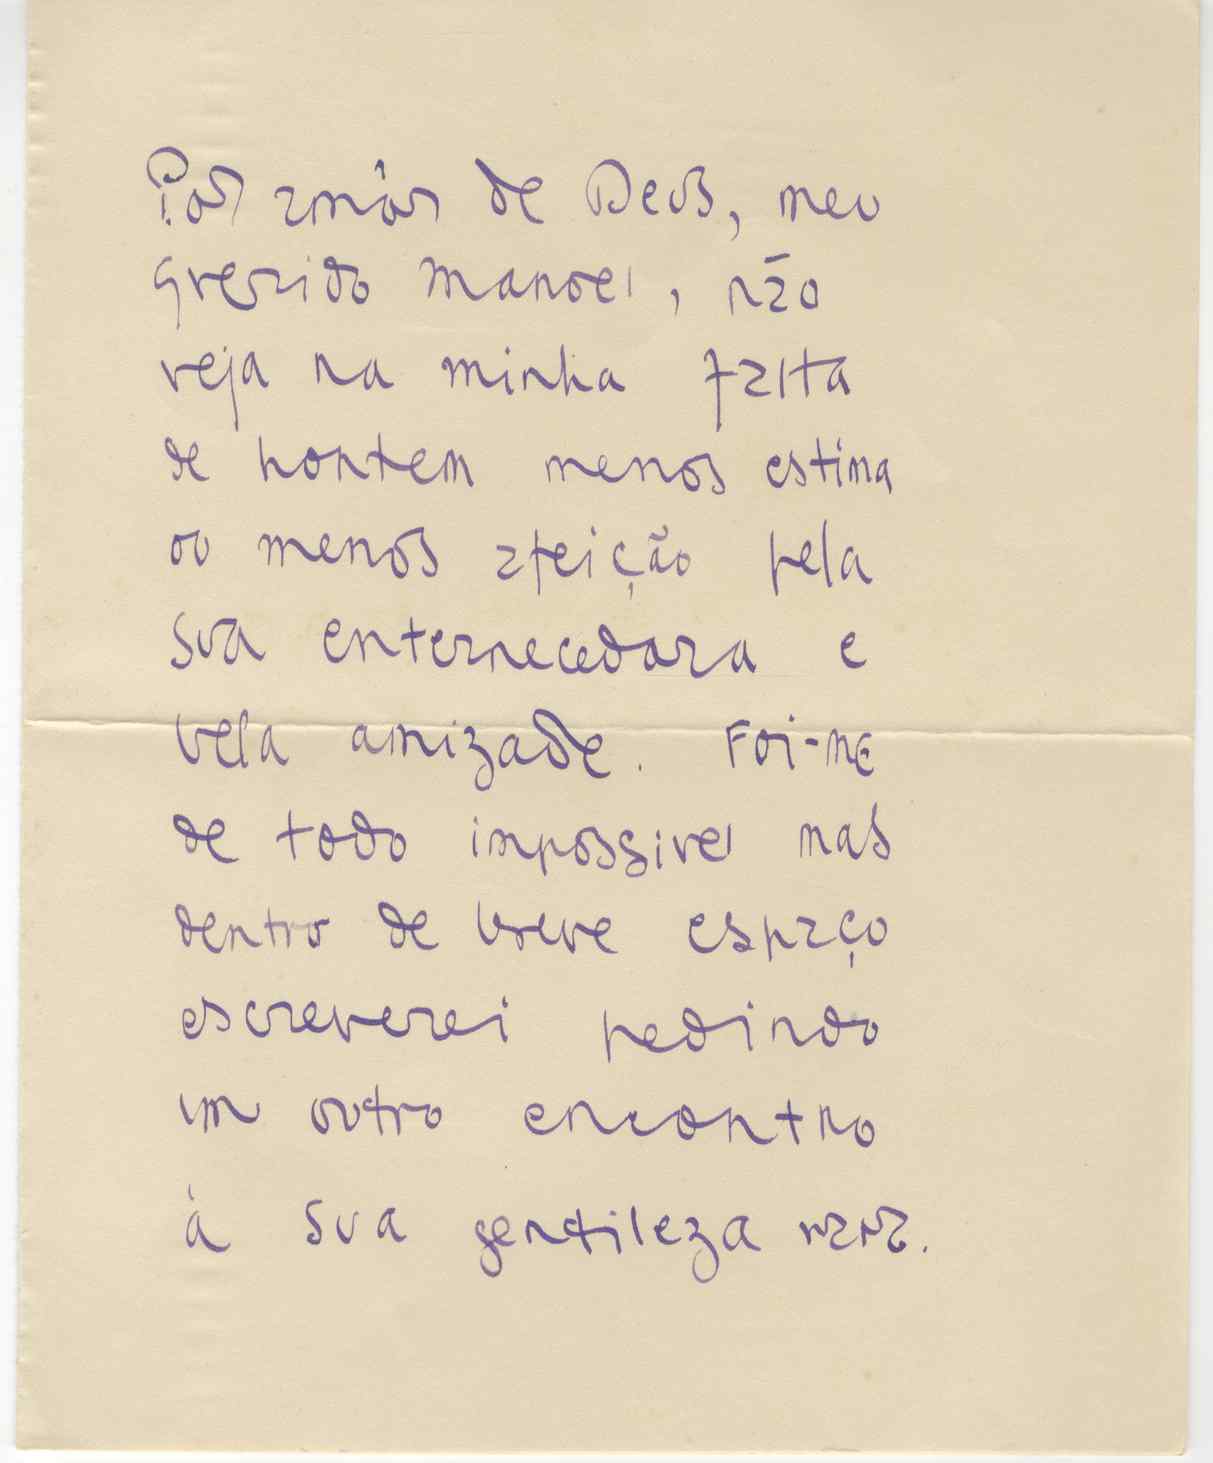 Por amôr de Deus, meu
querido Manoel, não
veja na minha falta
de hontem menos estima
ou menos afeição pela
sua enternecedora e
bela amizade. Foi-me
de todo impossivel mas
dentro de breve espaço
escreverei pedindo
um outro encontro
à sua gentileza rara.